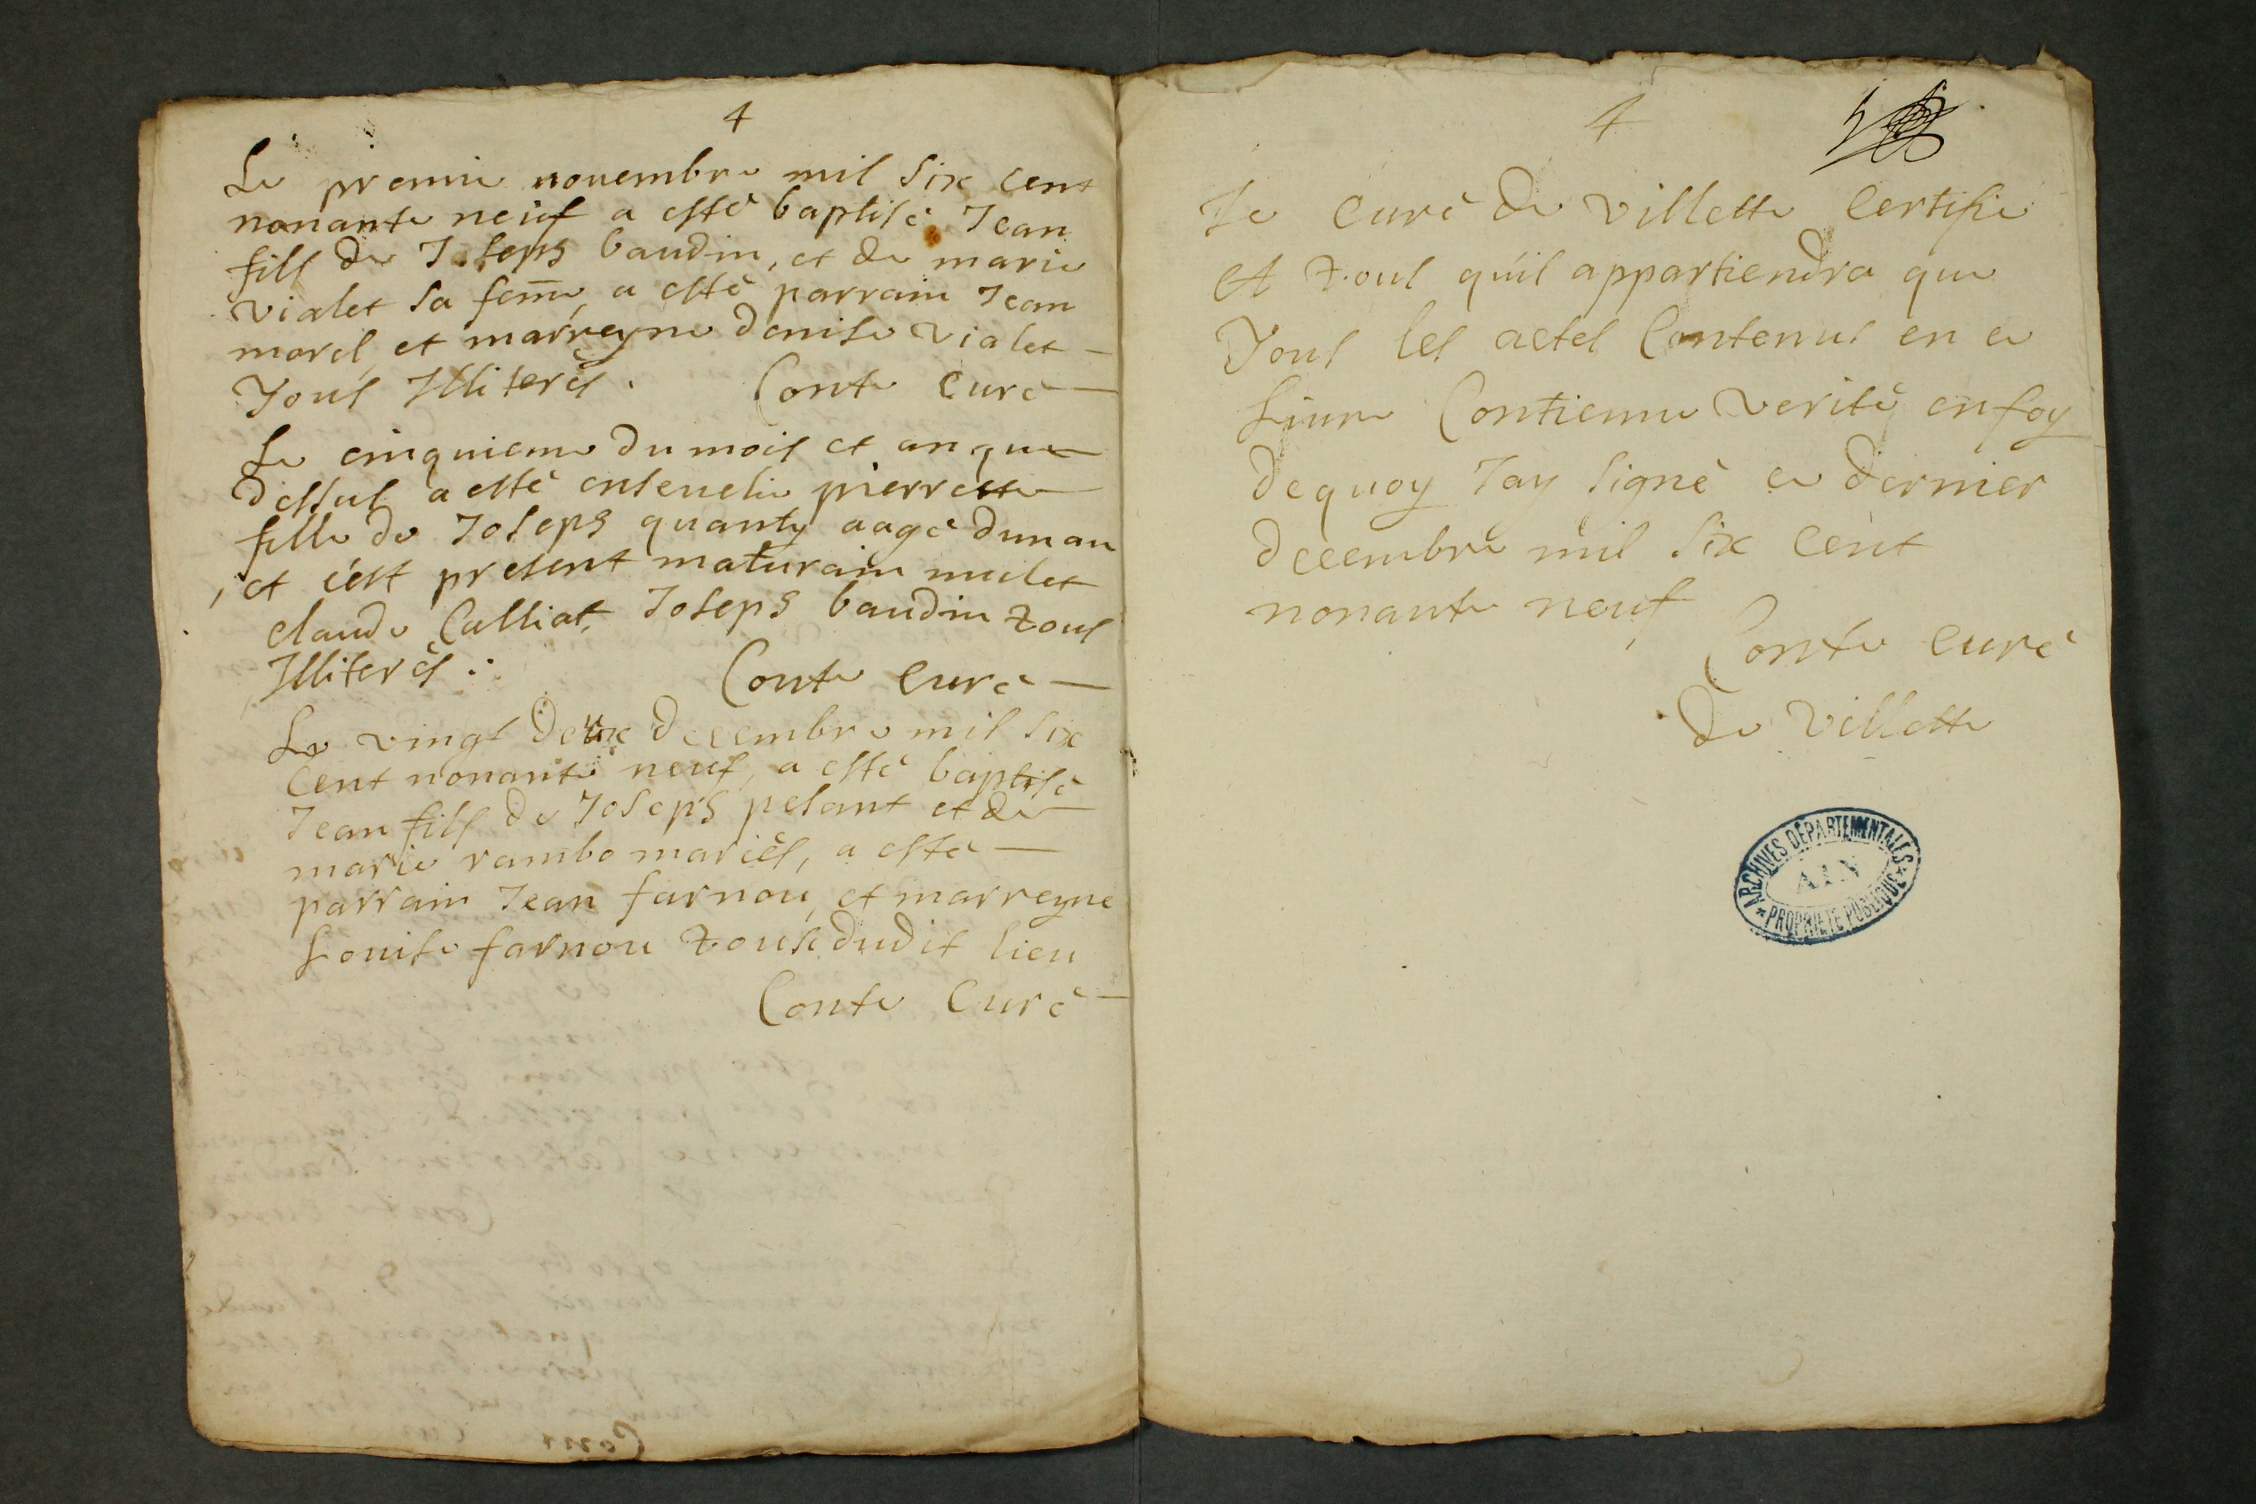 4
Le premie novembre mil six cent
nonante neuf a esté baptisé Jean
fils de Joseph baudin, et de marie
vialet sa fem̄e, a esté parrain Jean
morel, et marreyne denise vialet
Tous Illiterés. Conte curé
Le cinquieme du mois et an que
dessus a esté enseuelie pierrette
fille de Joseph quanty aagé dun an
, et c'est present maturain mulet
claude Calliat, Joseph baudin tous
Illiterés. Conte Curé
Le vingt deux decembre mil six
Cent nonante neuf, a esté baptisé
Jean fils de Joseph pesant et de
marie rambo mariés, a esté
parrain Jean farnou, et marreyne
Louise farnou tous dudit lieu
Conte Curé
4
Je curé de villette Certifie
A tous quil appartiendra que
Tous les actes Contenus en ce
Liure Contienne verité en foy
dequoy Jay signé ce dernier
decembre mil six cent
nonante neuf
Conte curé
de villette
ARCHIVES DÉPARTEMENTALES
AIN
PROPRIÉTÉ PUBLIQUE